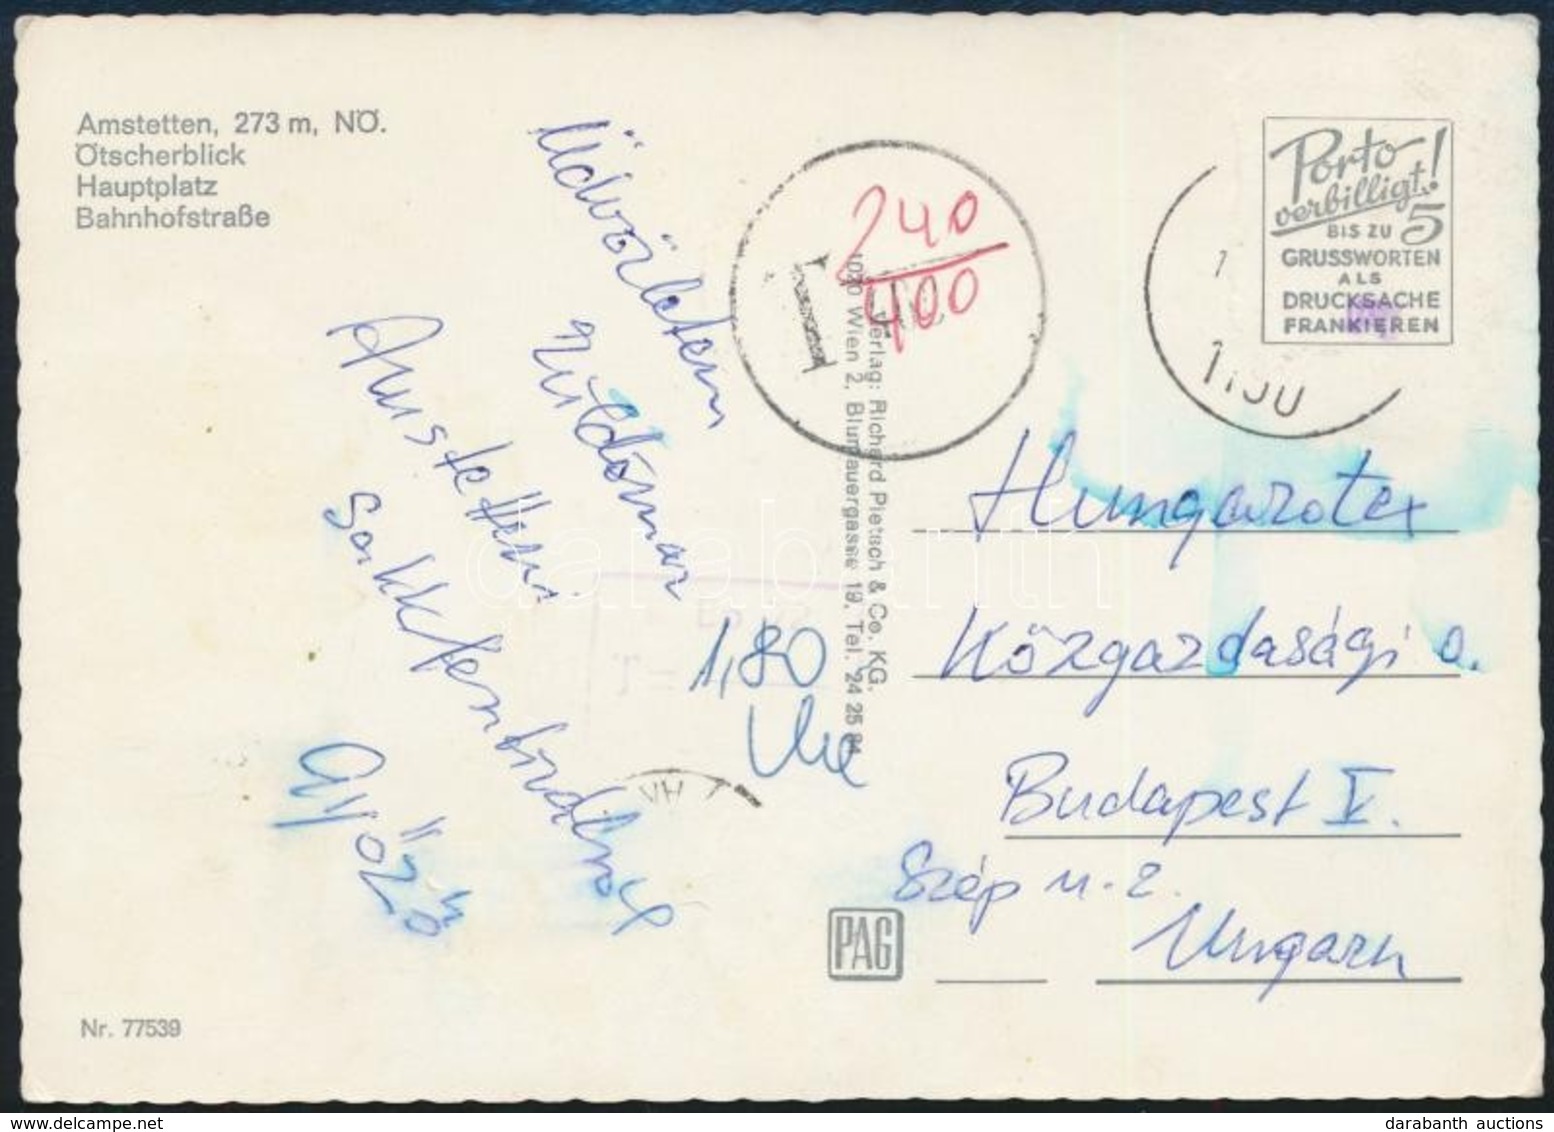 Amstetten, 273 m, NÖ.
Ötscherblick
Hauptplatz
Bahnhofstraße
Üdvözletem
küldöm az
Amstetteni
Győző
240
400
T
1,80
T=
Verlag: Richard Pietsch & Co. KG.
1020 Wien 2, Blumauergasse 19, Tel. 24 25 84
Porto
verbilligt!
BIS ZU 5
GRUSSWORTEN
ALS
DRUCKSACHE
FRANKIEREN
Hungarotex
Közgazdasági o.
Budapest V.
Szép u. 2.
Ungarn
PAG
Nr. 77539
darabanth
darabanth auctions